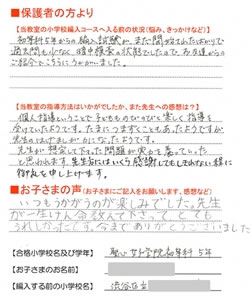 ■保護者の方より
【当教室の小学校編入コースへ入る前の状況（悩み、きっかけなど）】
初等科5年からの編入試験が、まだ開始されたばかりで
過去問も少なく暗中模索の状態でしたので、お友達からの
ご紹介でこちらにうかがいました。
【当教室の指導方法はいかがでしたか、また先生への感想は？】
個人指導ということで子どもものびのびと楽しく指導を
受けていたようです。たまにつまずくこともあったようですが
先生のはげましがかになったようです。
先生が想定して下さった問題が実力を養っていった
と思われます。先生方にはいくら感謝してもしきれない程に
御礼を申し上げます。
■お子さまの声（お子さまにご記入をお願いします。感想など）
いつもうかがうのが楽しみでした。先生
が一生けん命教えて下さって、とても
うれしかったです。今までありがとうございました
【合格小学校名及び学年】 聖心女子学院初等科5年
【お子さまのお名前】
【編入する前の小学校名】 渋谷区立